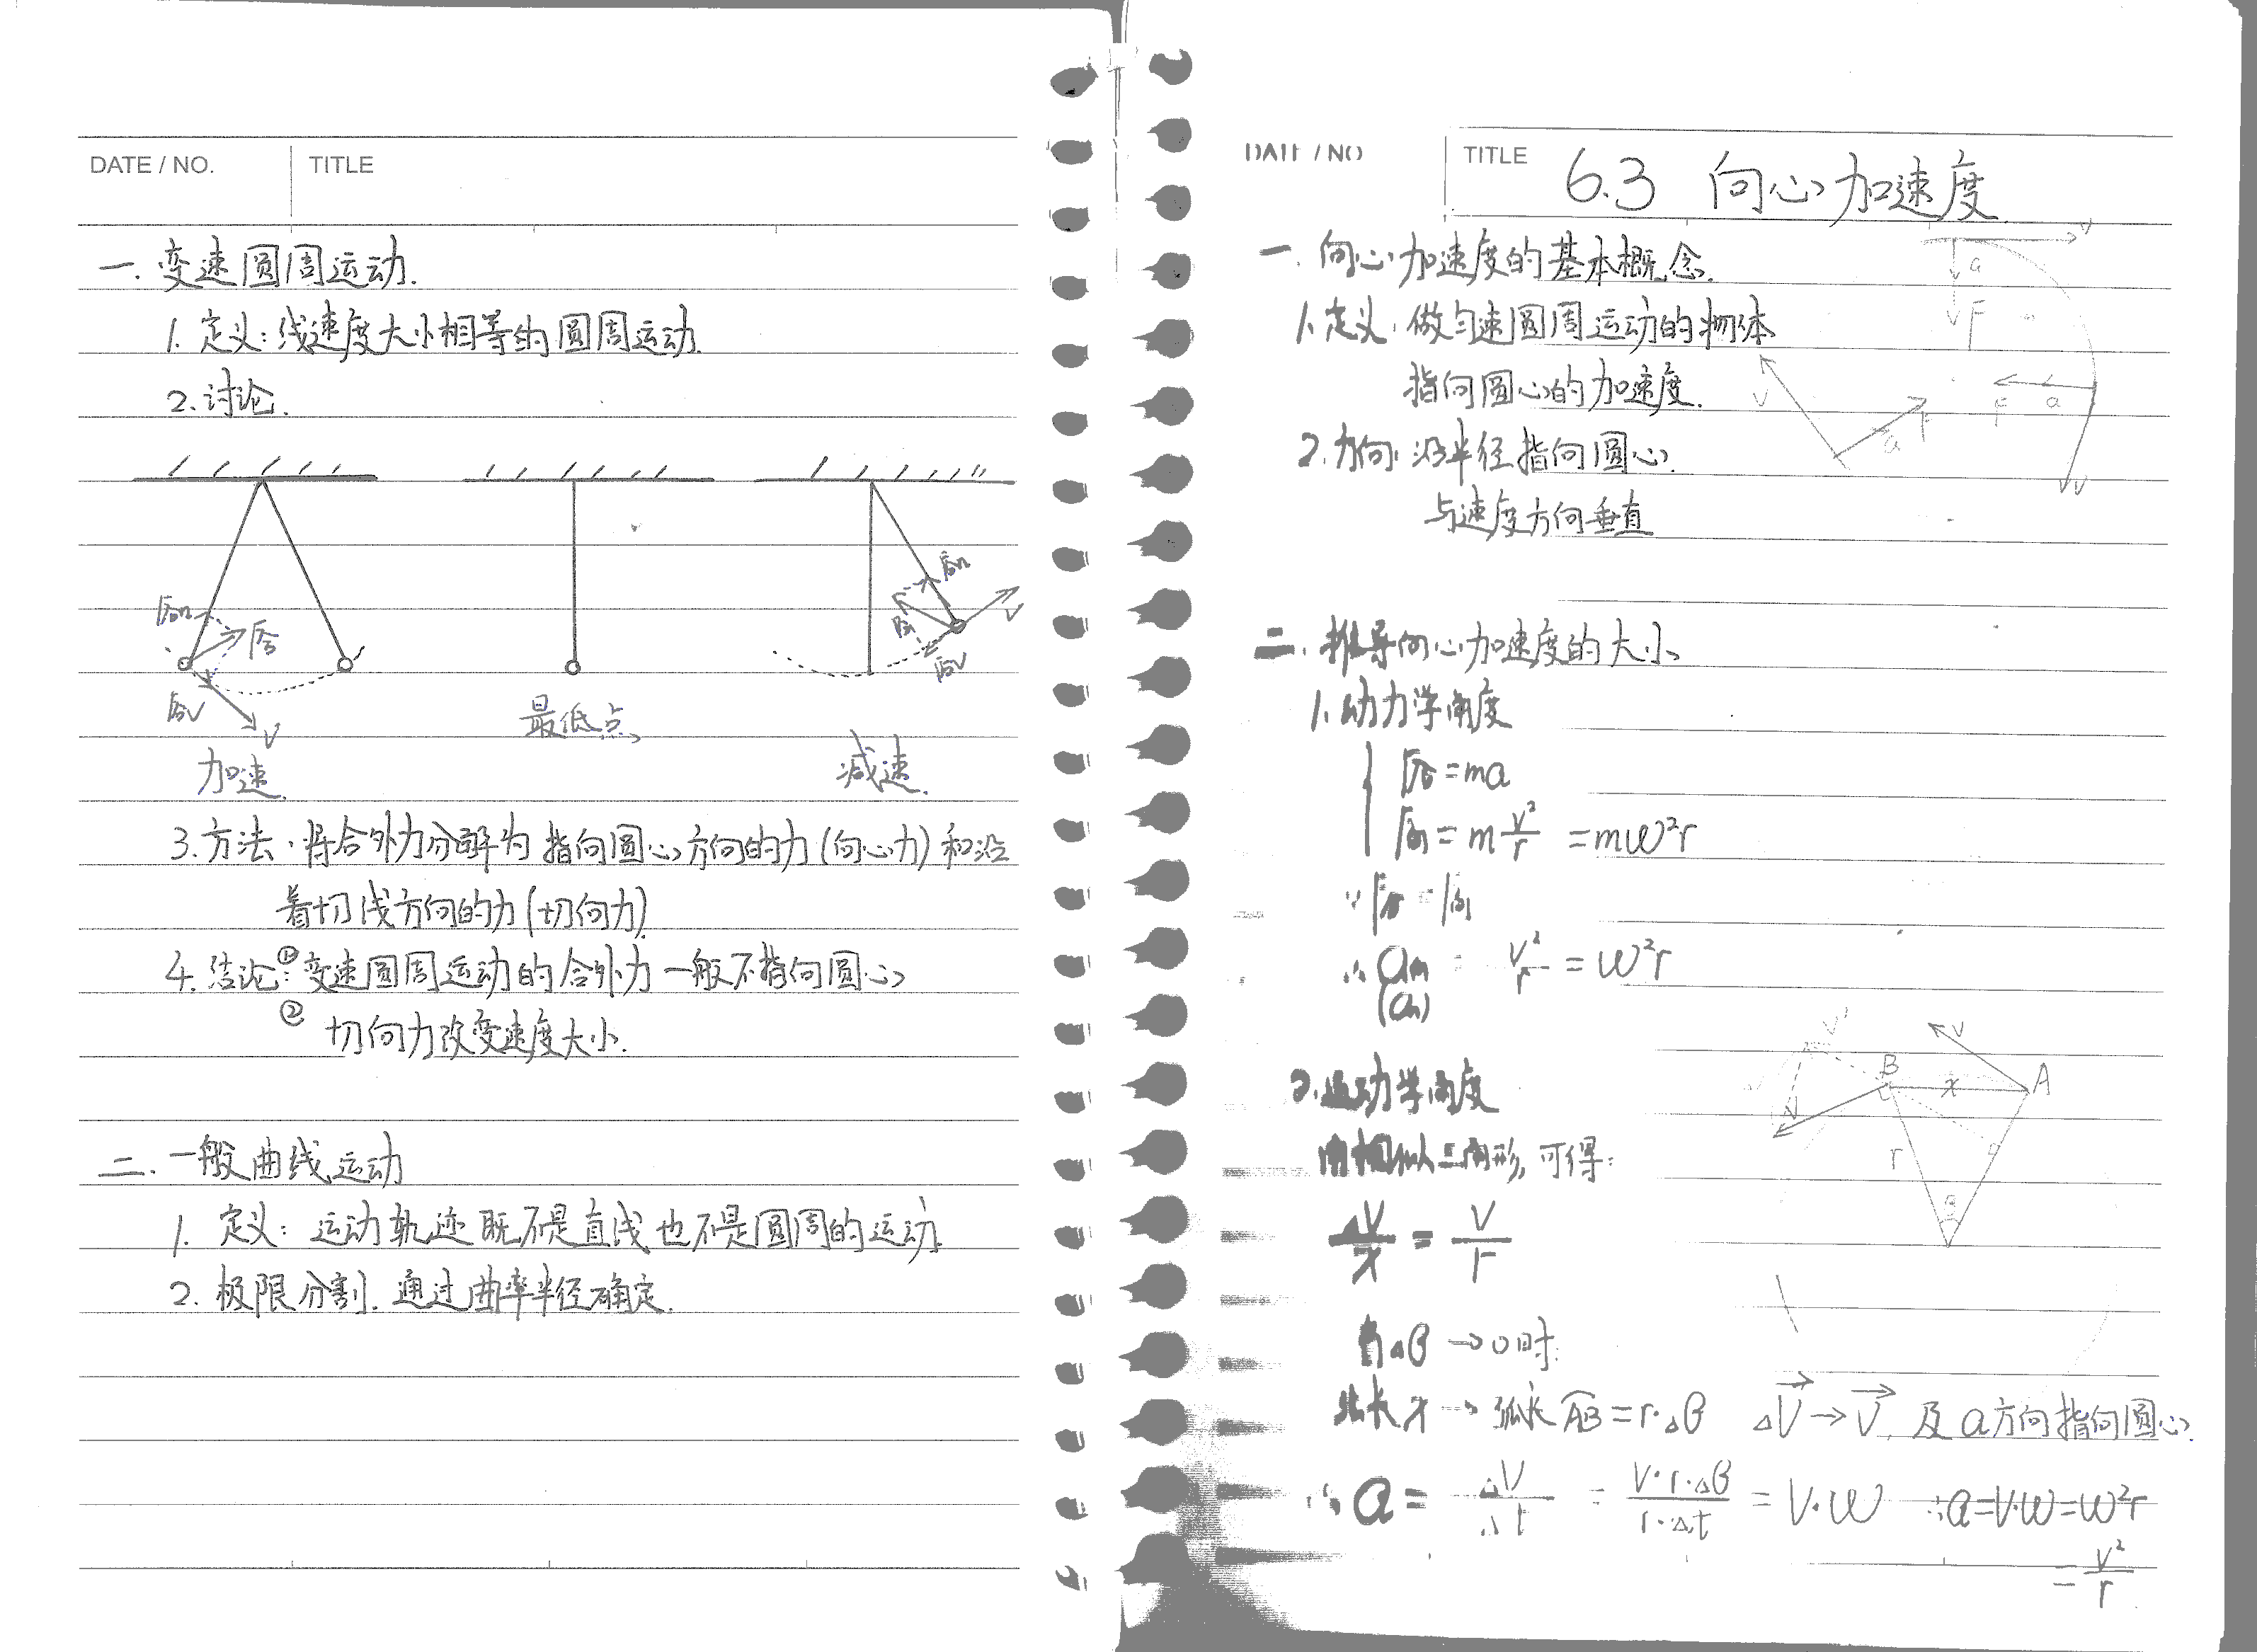 DATE / NO.
TITLE
一. 变速圆周运动.
1. 定义: 线速度大小相等的圆周运动.
2. 讨论.
F向
F合
F切
V
加速.
最低点
F向
F合
F切
V
减速.
3. 方法. 将合外力分解为指向圆心方向的力(向心力)和沿
着切线方向的力(切向力)
4. 结论: ① 变速圆周运动的合外力一般不指向圆心
② 切向力改变速度大小.
二. 一般曲线运动
1. 定义: 运动轨迹既不是直线也不是圆周的运动.
2. 极限分割. 通过曲率半径确定.
DATE / NO
TITLE
6.3 向心加速度
一. 向心加速度的基本概念.
1. 定义: 做匀速圆周运动的物体
指向圆心的加速度.
2. 方向: 沿半径指向圆心.
与速度方向垂直
V
a
F
V
a
F
F
a
V
二. 推导向心加速度的大小
1. 动力学角度
F合 = ma
F向 = m v²/r = mω²r
∵ F合 = F向
∴ a向 = v²/r = ω²r
(an)
2. 运动学角度
由相似三角形, 可得:
ΔV/x = V/r
V'
V
B
x
A
V
r
θ
当Δθ → 0时.
弦长x → 弧长AB = r·Δθ ΔV → V, 及a方向指向圆心.
∴ a = ΔV/Δt = V·r·Δθ/r·Δt = V·ω ∴ a = V·ω = ω²r
= V²/r